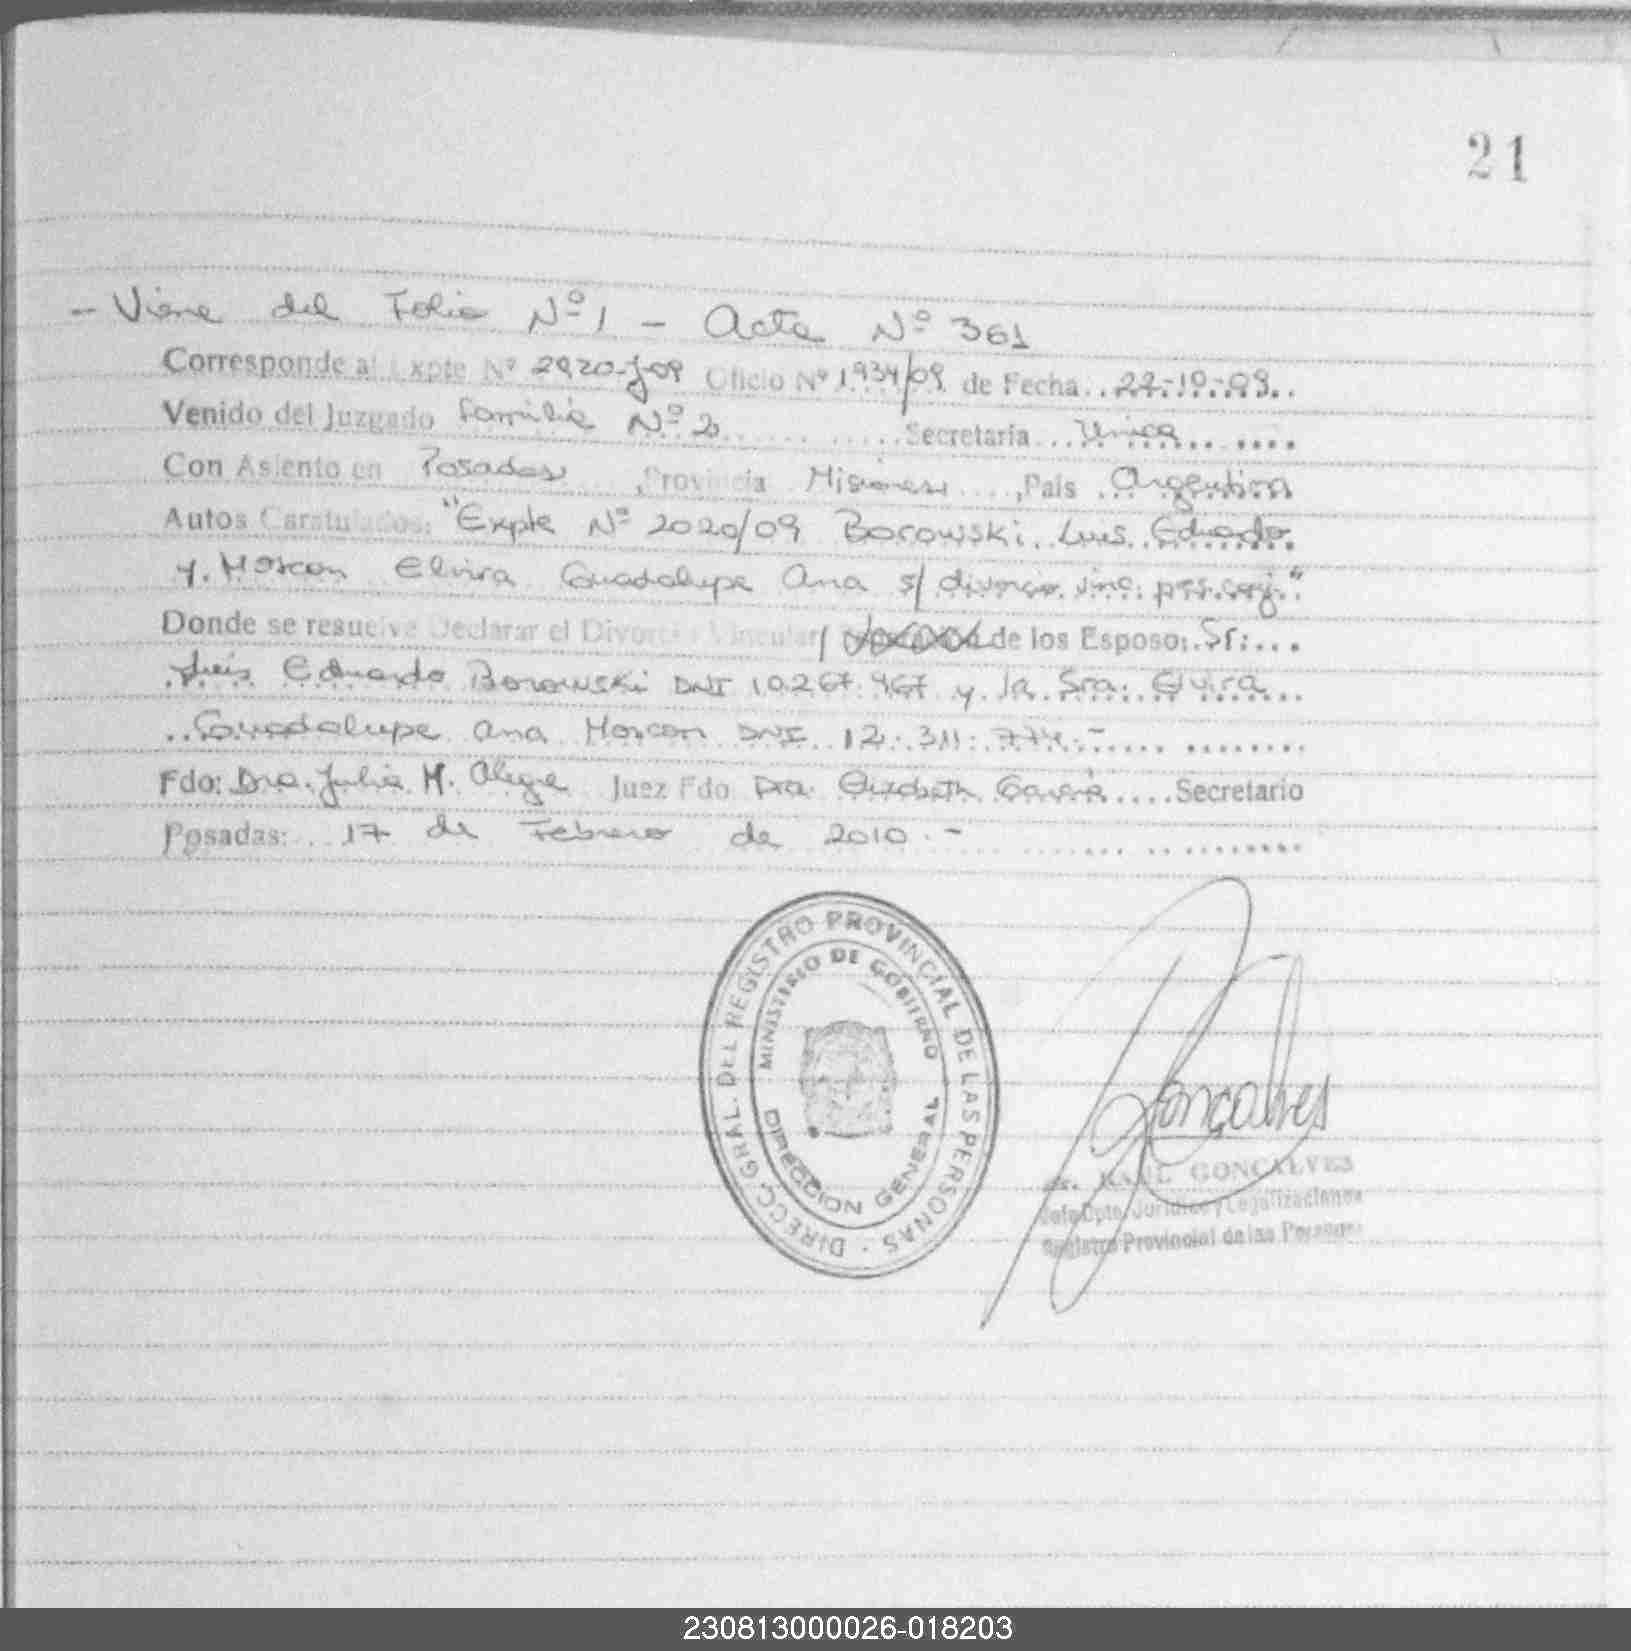 21
- Viene del Folio Nº 1 - Acta Nº 361
Corresponde al Expte Nº 2920-J-09 Oficio Nº 1934/09 de Fecha..22-10-09..
Venido del Juzgado Familia Nº 2 ..... Secretaria ... Unica ....
Con Asiento en Posadas ,Provincia Misiones ....,Pais ..Argentina
Autos Caratulados: "Expte Nº 2020/09 Borowski Luis Eduardo
y Moscon Elvira Guadalupe Ana s/ divorcio vinc. pres. conj."
Donde se resuelve Declarar el Divorcio Vincular / de los Esposo: Sr:...
Luis Eduardo Borowski DNI 10.267.467 y la Sra. Elvira
Guadalupe Ana Moscon DNI 12.311.774.-
Fdo: Dra. Julia M. Alegre Juez Fdo Dra. Elizabeth García .... Secretario
Posadas: 17 de Febrero de 2010.-
DIRECC. GRAL. DEL REGISTRO PROVINCIAL DE LAS PERSONAS
MINISTERIO DE GOBIERNO
DIRECCION GENERAL
Gonçalves
GONÇALVES
Jefe Dpto. Jurídico y Legalizaciones
Registro Provincial de las Personas
230813000026-018203